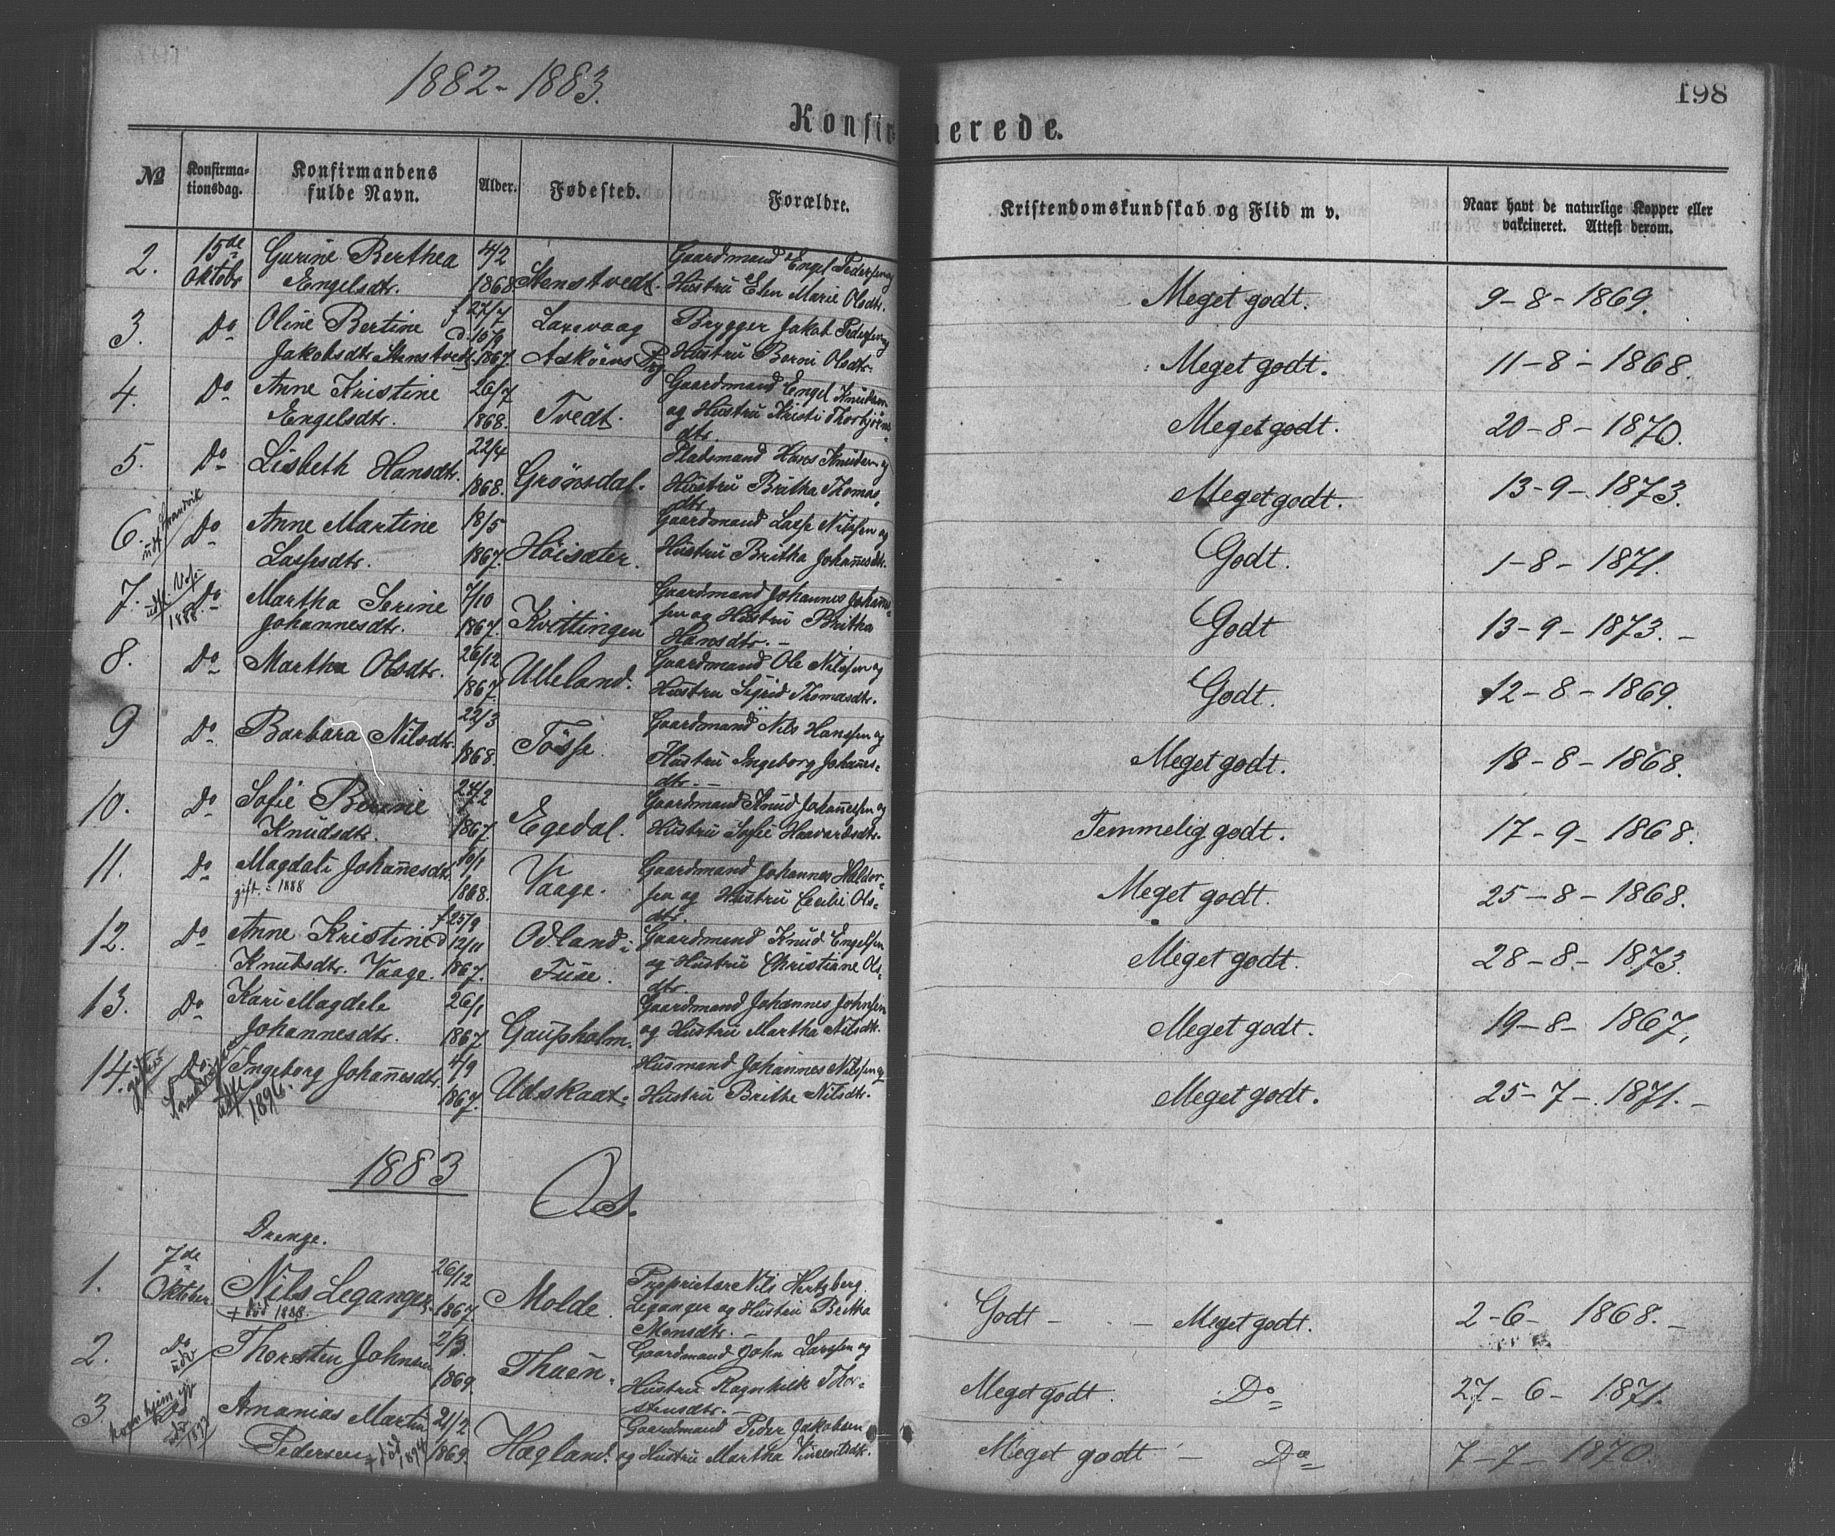 1882-1883.
198
Konfir nerede.
№ Konfirma-tionsdag. Konfirmandens fulde Navn. Alder. Fødested. Forældre. Kristendomskundskab og Flid m v. Naar havt de naturlige Kopper eller vakcineret. Attest derom.
2. 15de Gurine Berthea 4/2 Gaardmand Engel Pedersen og
Oktobr Engelsdtr. 1868 Stenstvedt. Hustru Elen Marie Olsdtr. Meget godt. 9-8-1869.
3. Do Oline Bertine f 27/7 Laxevaag Brygger Jakob Pedersen og
d. 10/9
Jakobsdtr. Stenstvedt 1867. Askøens Prg Hustru Berni Olsdtr. Meget godt. 11-8-1868.
4. Do Anne Kristine 26/7 Gaardmand Engel Knudsen
Engelsdtr. 1868. Tvedt. og Hustru Kristi Thorbjörns
dtr. Meget godt. 20-8-1870.
5. Do Lisbeth Hansdtr. 22/4 Pladsmand Hans Knudsen og
1868. Grönsdal. Hustru Britha Thomas
dtr. Meget godt. 13-9-1873.
6. udf Strandvik Do Anne Martine 18/5 Gaardmand Lasse Nilssen og
Lassesdtr. 1867. Höisæter. Hustru Britha Johannesdtr. Godt. 1-8-1871.
7. Do Martha Serine 7/10 Gaardmand Johannes Johannes-
1888. Johannesdtr. 1867. Kvittingen sen og Hustru Britha
Hansdtr. - Godt 13-9-1873.-
8. Do Martha Olsdtr. 26/12 Gaardmand Ole Nilssen og
1867. Ulleland. Hustru Sigrid Thomasdtr. Godt. 12-8-1869.
9 Do Barbara Nilsdtr. 22/3 Gaardmand Nils Hanssen og
1868. Tösse. Hustru Ingeborg Johanes-
dtr. - Meget godt. 18-8-1868.
10. Do Sofie Berine 24/2 Gaardmand Knud Johannessen og
Knudsdtr. 1867. Egedal. Hustru Sofie Haavardsdtr. Temmelig godt. 17-9-1868.
11. Do Magdali Johanesdtr. 10/1 Gaardmand Johannes Haldor-
gift. 1888 1868. Vaage. sen og Hustru Cecilie Ols-
dtr. Meget godt. 25-8-1868.
12. Do Anne Kristine f 25/9 Odland i Gaardmand Knud Engelsen
d 12/11
Knudsdtr. Vaage. 1867. Fuse. og Hustru Christiane Ols-
dtr. Meget godt. 28-8-1873.
13. Do Kari Magdele 26/1 Gaardmand Johannes Johnsen
Johannesdtr. 1867. Gaupholm. og Hustru Martha Nilsdtr. Meget godt. 19-8-1867,
14. Do Ingeborg Johanesdtr. 4/9 Husmand Johannes Nilssen og
1896. 1867. Udskaat. Hustru Brithe Nilsdtr. Meget godt. 25-7-1871.-
1883 Os.
Drenge.
1. 7de Nils Leganger 26/12 Proprietær Nils Hertzberg
Oktober. + död 1888. 1867. Molde. Leganger og Hustru Bertha
Monsdtr. - Godt - - Meget godt. 2-6-1868.-
2. Do Thorsten Johnsen 2/3 Gaardmand John Larssen og
udv 1869 Thuen. Hustru Ragnhild Thor-
stensdtr. - Meget godt. Do 27-6-1871.
3 Do Ananias Martin 21/2 Gaardmand Peder Jakobsen
Pedersen + död 1894 1869. Hægland. og Hustru Martha Vincentsdtr. Meget godt - Do 7-7-1870.